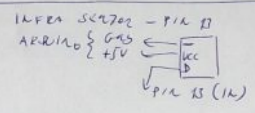 INFRA SENZOR - PIN 13
ARDUINO { GND
+5V
-
VCC
D
PIN 13 (IN)